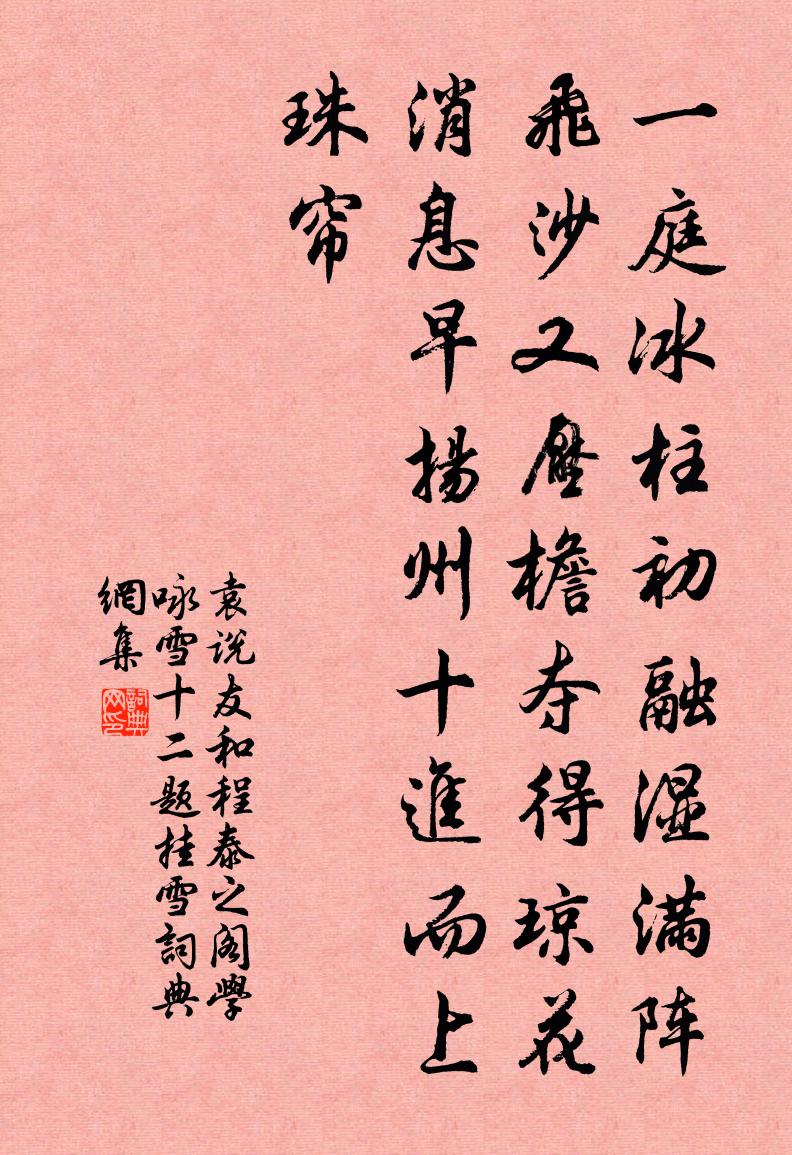 一庭冰柱初融湿满阵
飛沙又壓檐夺得琼花
消息早揚州十進而上
珠帘
袁说友和程泰之阁學
咏雪十二题挂雪詞典
網集
詞典网印